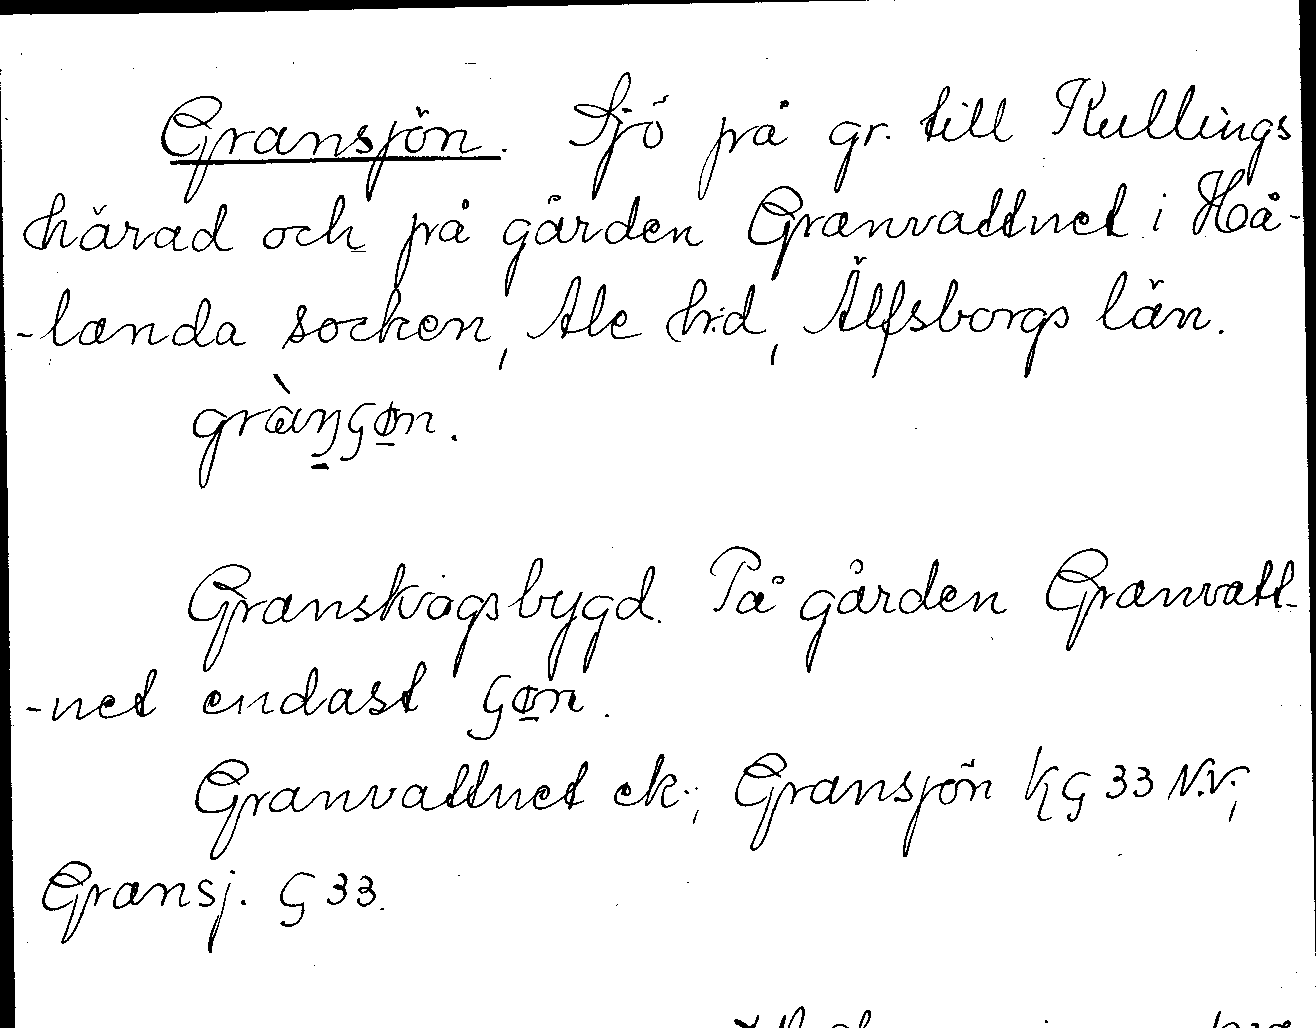 Gransjön. Sjö på gr. till Kullings
härad och på gården Granvattnet i Hå-
-landa socken, Ale hrd, Älfsborgs län.
Granskogsbygd. På gården Granvatt-
-net endast
Granvattnet ek.; Gransjön KG 33 N.V.;
Gransj. G 33.